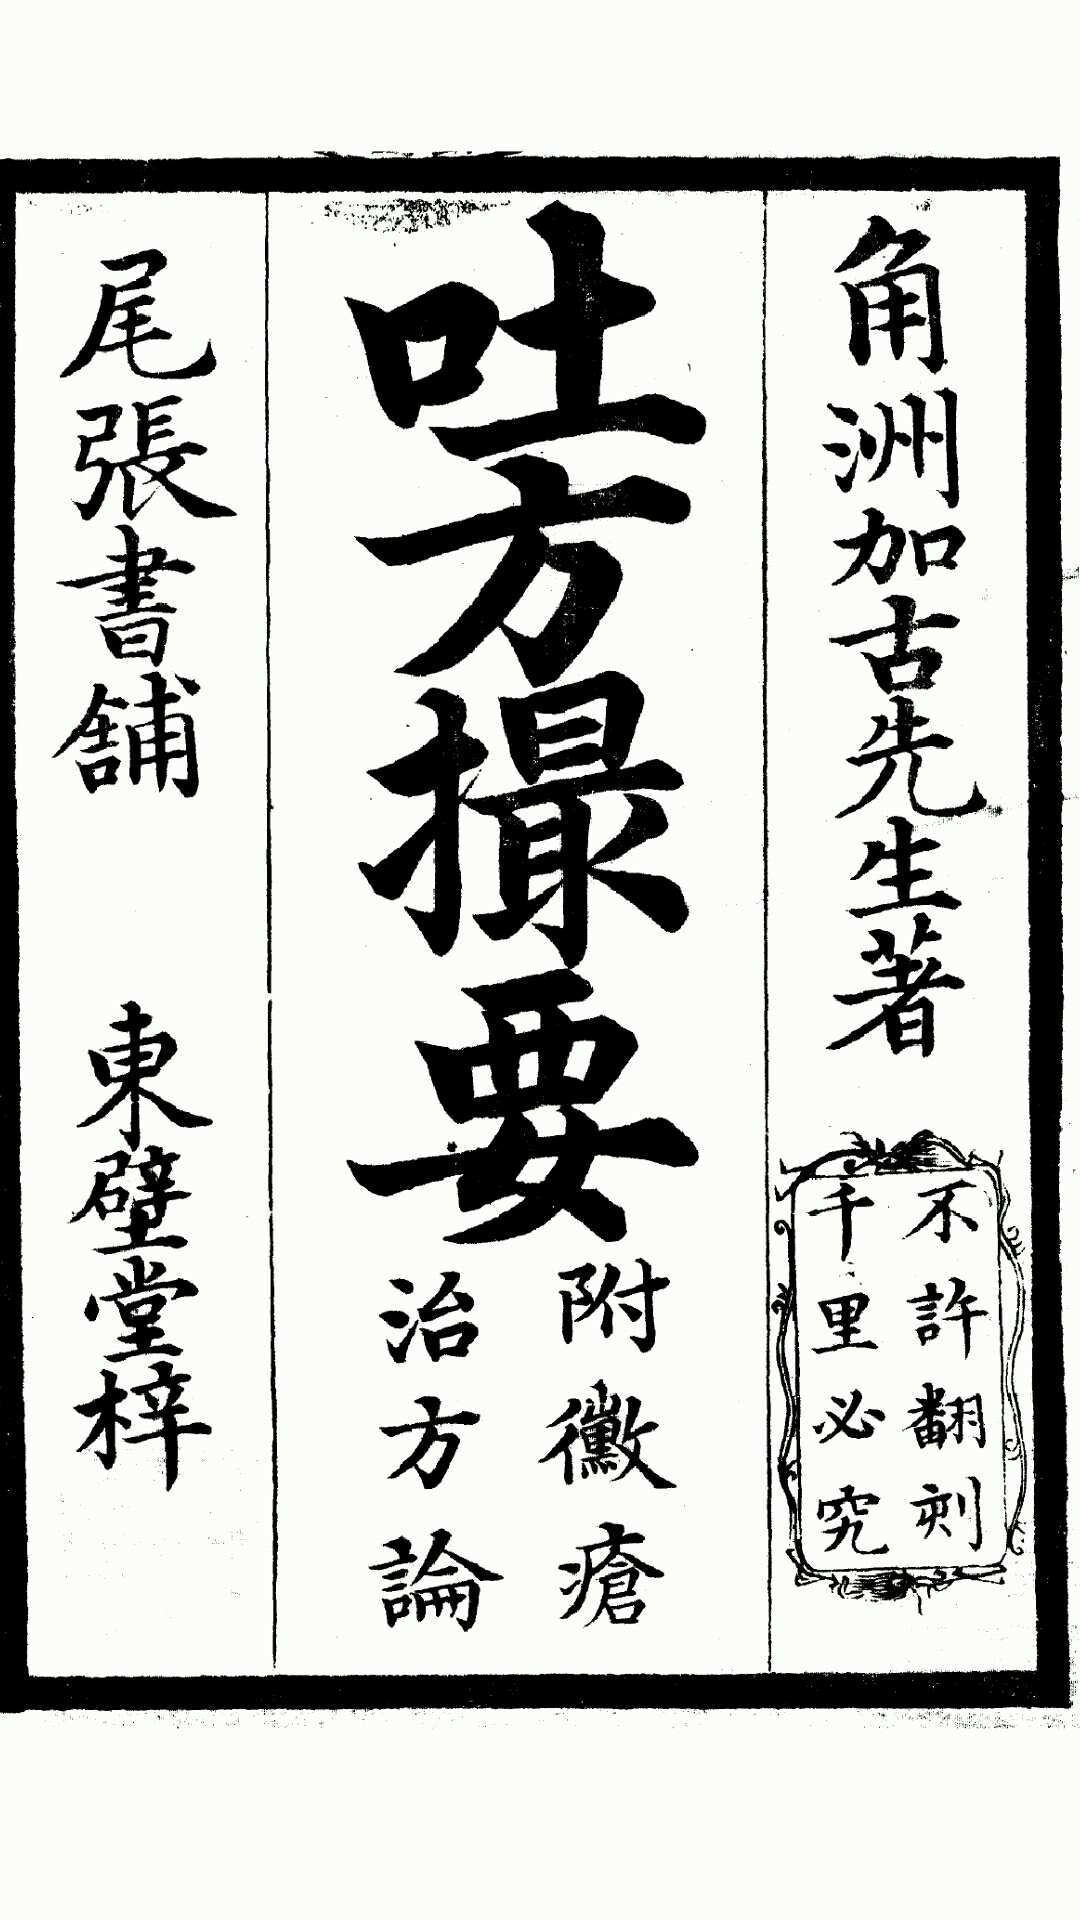 角洲加古先生著
不許翻刻
千里必究
吐方撮要
附黴瘡
治方論
尾張書舗　東壁堂梓